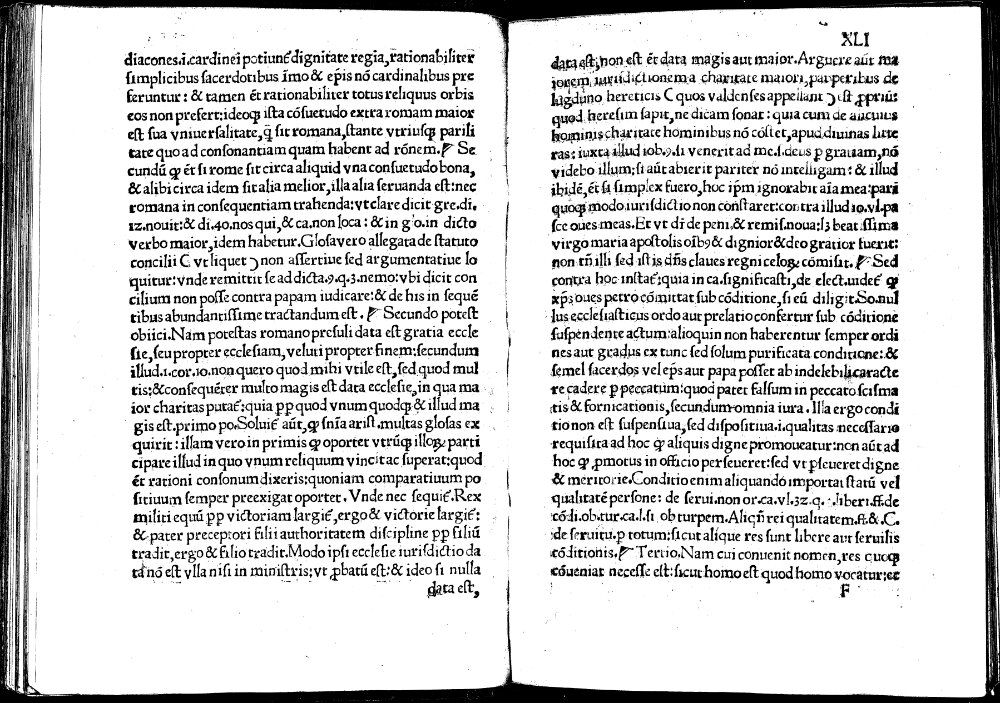 diacones.i.cardinei potiunē dignitate regia,rationabiliter
simplicibus sacerdotibus īmo & ep̄is nō cardinalibus pre
feruntur: & tamen ēt rationabiliter totus reliquus orbis
eos non prefert:ideoq; ista cōsuetudo extra romam maior
est sua vniuersalitate, q̄ sit romana,stante vtriusq; parili
tate quo ad consonantiam quam habent ad rōnem. Se
cundū q ēt si rome sit circa aliquid vna consuetudo bona,
& alibi circa idem sit alia melior, illa alia seruanda est:nec
romana in consequentiam trahenda:vt clare dicit gre.di.
12.nouit:& di.40.nos qui, & ca.non loca: & in glo.in dicto
verbo maior,idem habetur. Glosa vero allegata de statuto
concilii ( vt liquet ) non assertiue sed argumentatiue lo
quitur:vnde remittit se ad dicta.9.q.3.nemo:vbi dicit con
cilium non posse contra papam iudicare:& de his in sequē
tibus abundantissime tractandum est. Secundo potest
obiici.Nam potestas romano presuli data est gratia eccle
sie,seu propter ecclesiam, veluti propter finem:secundum
illud.1.cor.10.non quero quod mihi vtile est,sed quod mul
tis:& consequēter multo magis est data ecclesie,in qua ma
ior charitas putaē:quia pp quod vnum quodq; & illud ma
gis est.primo po.Soluiē aūt,q snīa arist.multas glosas ex
quirit: illam vero in primis q oportet vtrūq; illoꝝ parti
cipare illud in quo vnum reliquum vincit ac superat:quod
ēt rationi consonum dixeris:quoniam comparatiuum po
sitiuum semper preexigat oportet. Vnde nec sequiē.Rex
militi equū pp victoriam largiē, ergo & victorie largiē:
& pater preceptori filii authoritatem discipline pp filiū
tradit,ergo & filio tradit.Modo ipsi ecclesie iurisdictio da
ta nō est vlla nisi in ministris;vt ꝓbatū est:& ideo si nulla
data est,
XLI
data est,non est ēt data magis aut maior.Arguere aūt ma
iorem iurisdictionem a charitate maiori,pauperibus de
lugduno hereticis ( quos valdenses appellant ) est ꝓprius:
quod heresim sapit,ne dicam sonat: quia cum de
hominis charitate hominibus nō cōstet,apud diuinas litte
ras: iuxta illud iob.9.si venerit ad me.s.deus p gratiam,nō
videbo illum;si aūt abierit pariter nō intelligam: & illud
ibidē,ēt si simplex fuero,hoc ip̄m ignorabit aīa mea:pari
quoq; modo iurisdictio non constaret:contra illud io.vl.pa
sce oues meas.Et vt dr̄ de peni.& remis.noua:lꝫ beatissima
virgo maria apostolis oībꝰ & dignior & deo gratior fuerit:
non tn̄ illi sed istis dn̄s claues regni celoꝝ cōmisit. Sed
contra hoc instaē:quia in ca.significasti, de elect.uideē q
xp̄s oues petro cōmittat sub cōditione,si eū diligit.So.nul
lus ecclesiasticus ordo aut prelatio confertur sub cōditione
suspendente actum:alioquin non haberentur semper ordi
nes aut gradus ex tunc sed solum purificata conditione:&
semel sacerdos vel eps aut papa posset ab indelebili caracte
re cadere p peccatum:quod patet falsum in peccato scisma
tis & fornicationis,secundum omnia iura. Illa ergo condi
tio non est suspensiua,sed dispositiua.i.qualitas necessario
requisita ad hoc q aliquis digne promoueatur:non aūt ad
hoc q ꝓmotus in officio perseueret:sed vt pseueret digne
& meritorie.Conditio enim aliquando importat statū vel
qualitatē persone: de serui.non or.ca.vl.32.q. .liberi.ff.de
cōdi.ob.tur.ca.l.si ob turpem.Aliqn̄ rei qualitatem.ff.& C.
de seruitu.p totum:sicut alique res sunt libere aut seruilis
cōditionis. Tertio.Nam cui conuenit nomen,res quoq;
cōueniat necesse est:sicut homo est quod homo vocatur:et
F